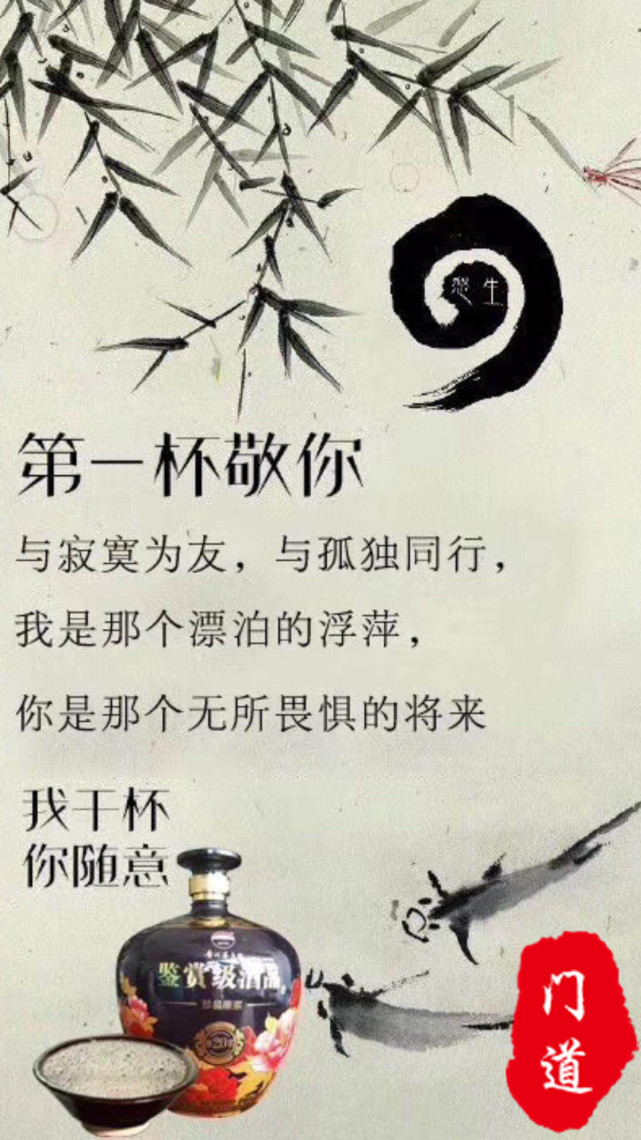 第一杯敬你
与寂寞为友，与孤独同行，
我是那个漂泊的浮萍，
你是那个无所畏惧的将来
我干杯
你随意
鉴赏级酒品
珍品原浆
20
门道